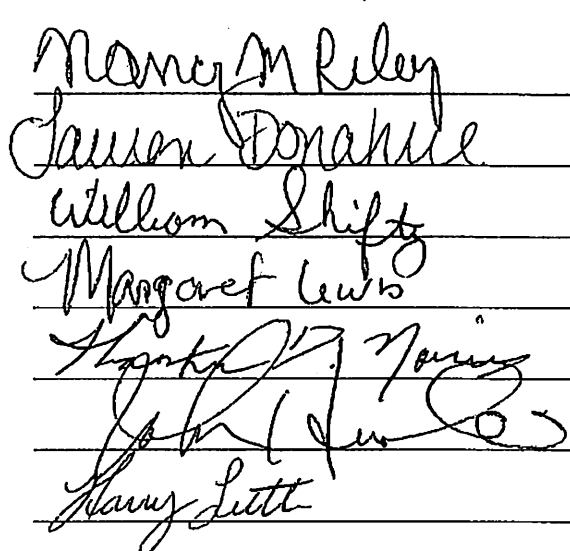 Nancy M Riley
Lauren Donahue
William Shifty
Margaret Lewis
D. Norris
John
Harry